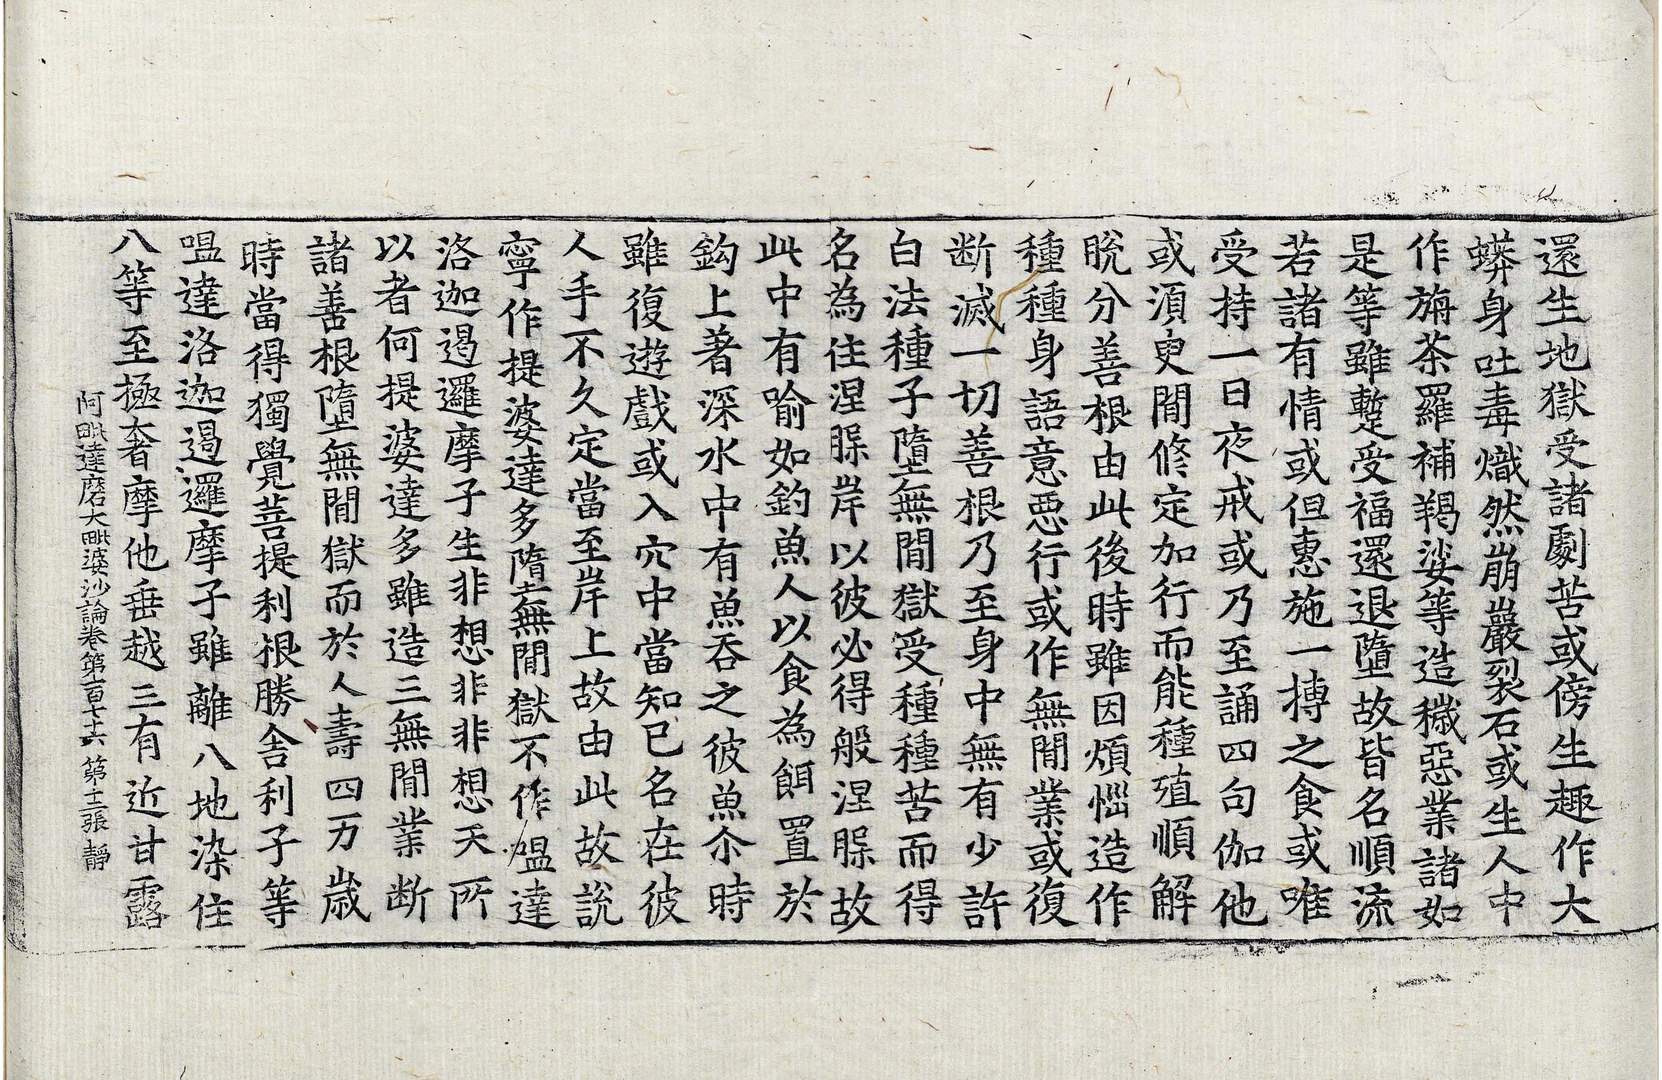 還生地獄受諸劇苦或傍生趣作大
蟒身吐毒熾然崩巖裂石或生人中
作旃茶羅補羯娑等造穢惡業諸如
是等雖蹔受福還退墮故皆名順流
若諸有情或但惠施一摶之食或唯
受持一日夜戒或乃至誦四句伽他
或湏臾閒修定加行而能種殖順解
脫分善根由此後時雖因煩惱造作
種種身語意惡行或作無閒業或復
断滅一切善根乃至身中無有少許
白法種子墮無閒獄受種種苦而得
名為住涅槃岸以彼必得般涅槃故
此中有喻如釣魚人以食為餌置於
鈎上著深水中有魚吞之彼魚尒時
雖復遊戲或入穴中當知已名在彼
人手不久定當至岸上故由此故說
寧作提婆達多墮無閒獄不作嗢達
洛迦遏邏摩子生非想非非想天所
以者何提婆達多雖造三無閒業断
諸善根墮無閒獄而於人壽四万歲
時當得獨覺菩提利根勝舎利子等
嗢達洛迦遏邏摩子雖離八地染住
八等至極奢摩他垂越三有近甘露
阿毗達磨大毗婆沙論卷第一百七十六 第十二張 靜